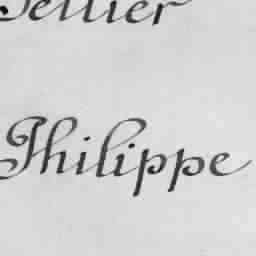 Tellier
Philippe